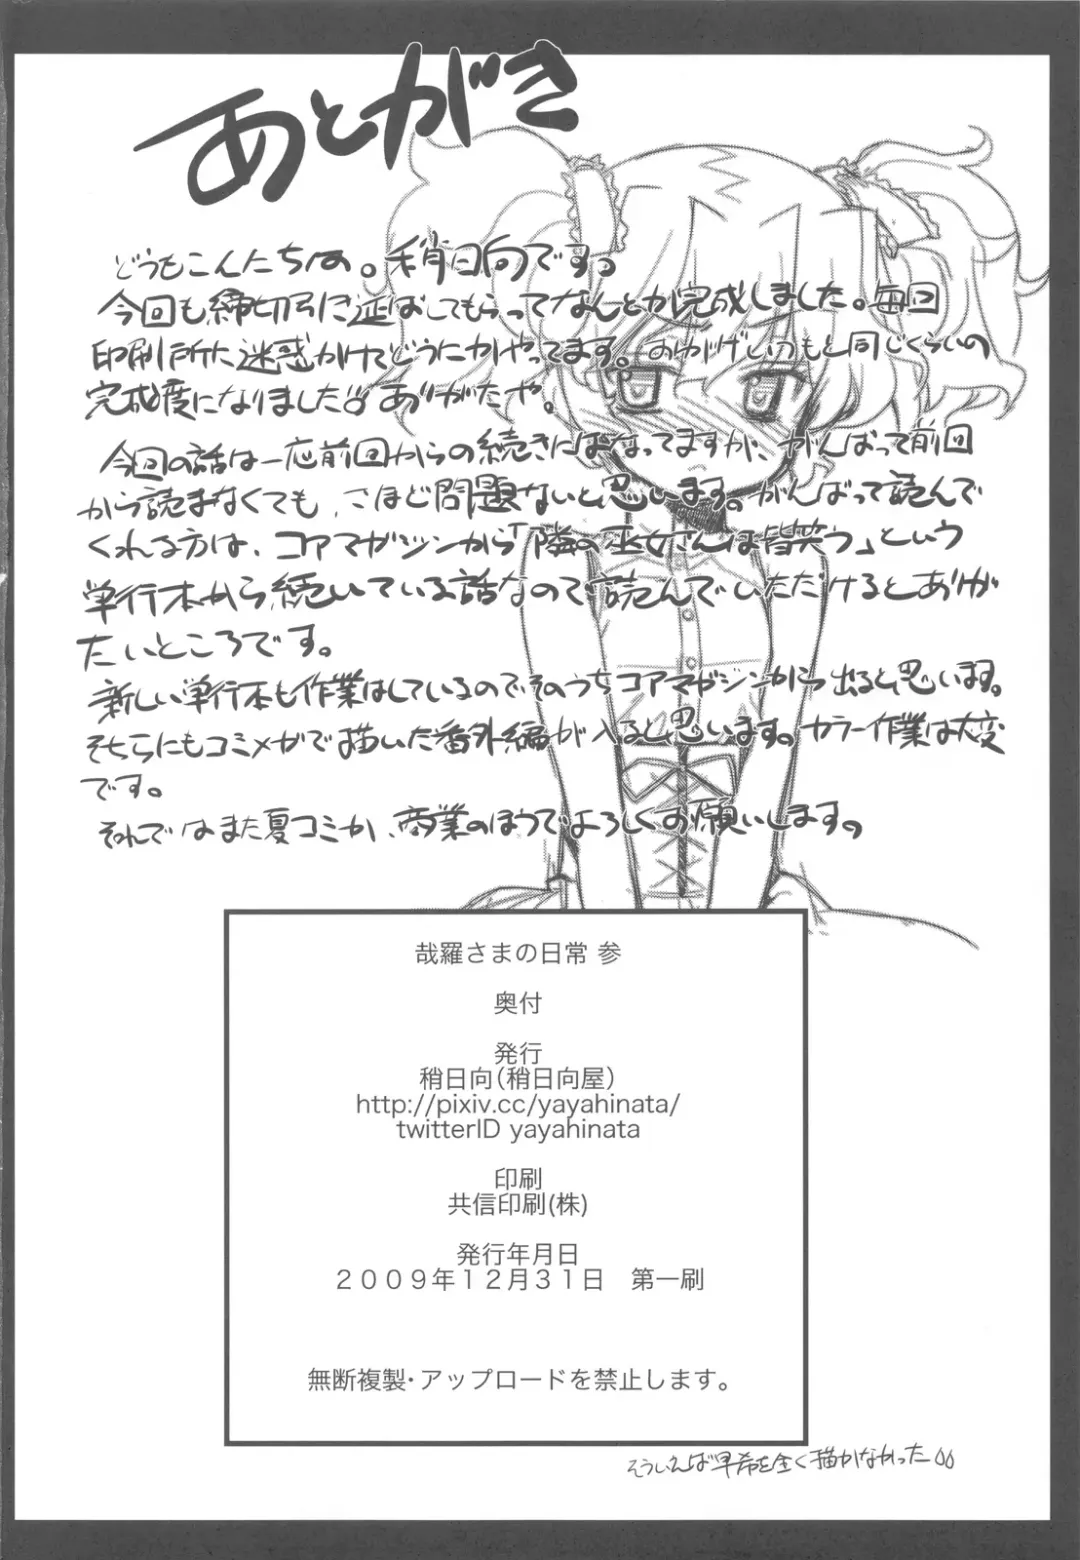 あとがき
どうもこんにちはの。稍日向ですっ
今回も締切引き延ばしてもらってなんとか完成しました。毎回
印刷所に迷惑かけてどうにかやってます。おかげでいつもと同じくらいの
完成度になりました ありがたや。
今回の話は一応前回からの続きにはなってますが、がんばって前回
から読まなくても、さほど問題ないと思います。がんばって読んで
くれる方は、コアマガジンから「隣の巫女さんは皆笑う」という
単行本から続いている話なので読んでいただけるとありが
たいところです。
新しい単行本も作業はしているのでそのうちコアマガジンから出ると思います。
そちらにもコミメガで描いた番外編が入ると思います。カラー作業は大変
です。
それではまた夏コミか、商業のほうでよろしくお願いします。
哉羅さまの日常 参
奥付
発行
稍日向（稍日向屋）
http://pixiv.cc/yayahinata/
twitterID yayahinata
印刷
共信印刷(株)
発行年月日
２００９年１２月３１日　第一刷
無断複製・アップロードを禁止します。
そういえば早希を全く描かなかった